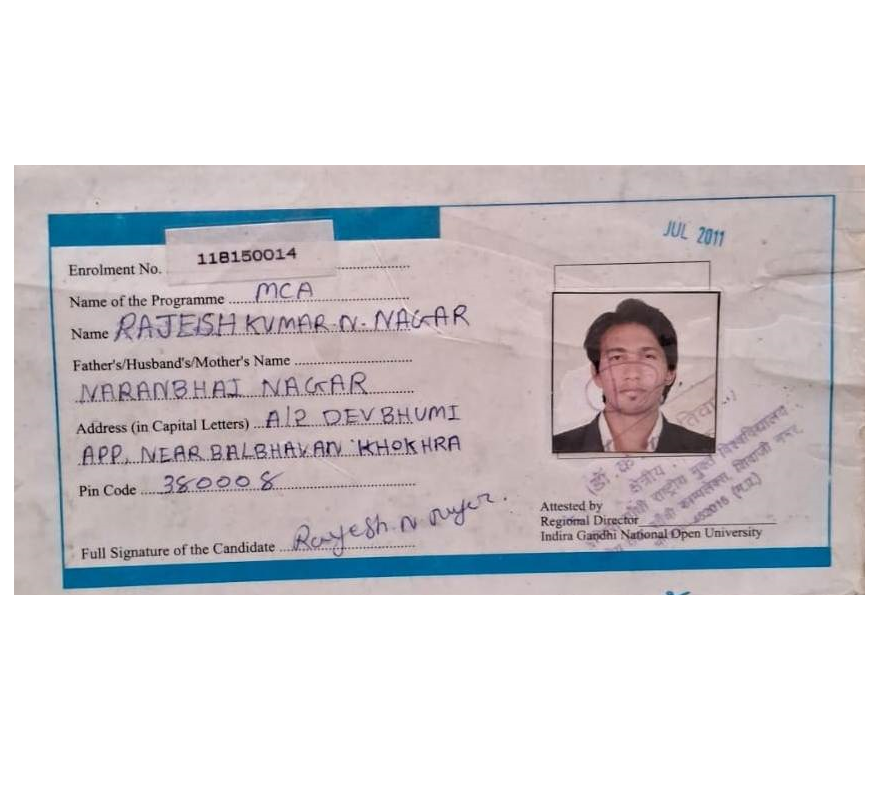 JUL 2011
Enrolment No. 118150014
Name of the Programme MCA
Name RAJESHKUMAR.N. NAGAR
Father's/Husband's/Mother's Name
NARANBHAI NAGAR
Address (in Capital Letters) A/2 DEVBHUMI
APP, NEAR BALBHAVAN KHOKHRA
Pin Code 380008
Full Signature of the Candidate Rajesh. N
Attested by
Regional Director
Indira Gandhi National Open University
(डॉ. के
क्षेत्रीय
राष्ट्रीय मुक्त विश्वविद्यालय
शिवाजी नगर,
(म.प्र.)